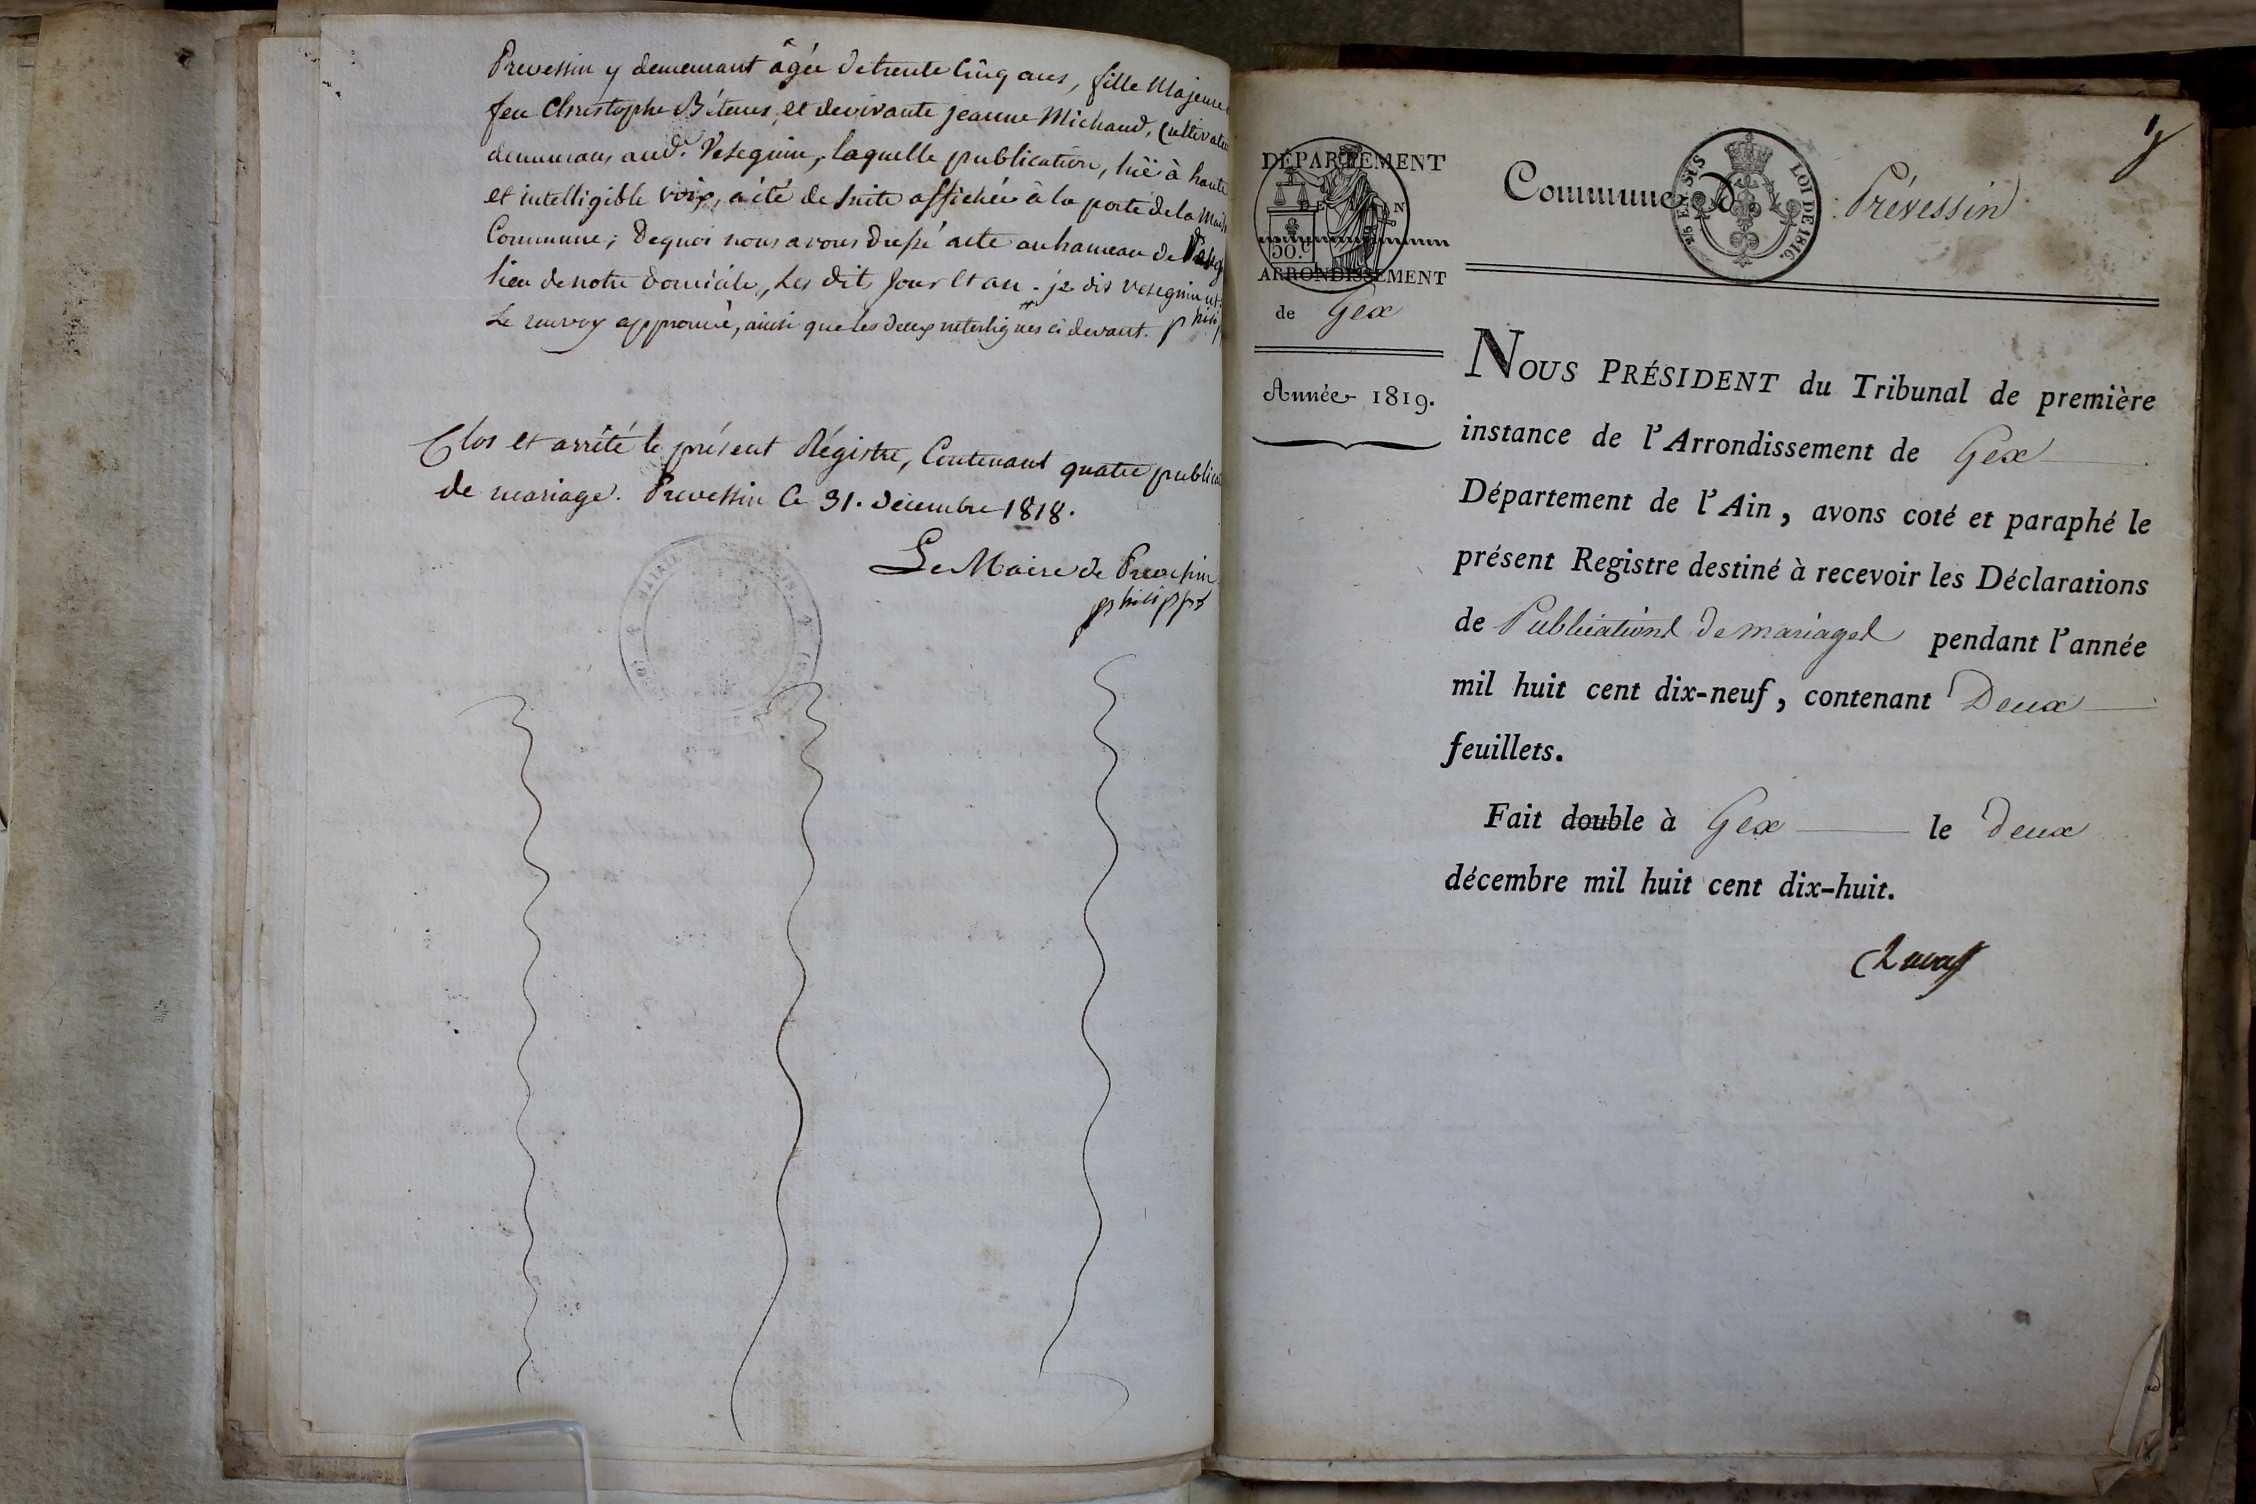 Prevessin y demeurant âgée de trente Cinq ans, fille Majeure
feu Christophe Béteus, et devivante jeanne Michaud, Cultivateu
demeurans aud. Veseguin, laquelle publication, luë à haute
et intelligible voix, a été de suite affichée à la porte de la Mais
Commune; Dequoi nous avons dressé acte au hameau de
lieu de notre domicile, Les dits Jour et an. je dis veseguin
Le renvoy approuvé, ainsi que les deux interlignes ci devant. phili
Clos et arrêté le présent Régistre, Contenant quatre publicat
de mariage. Prevessin Ce 31. Décembre 1818.
Le Maire de Prevessin
philippe
1
DÉPARTEMENT
DE L'AIN
50.
ARRONDISSEMENT
de Gex
Année 1819.
Commune d
25 EN SUS
LOI DE 1816.
Prévessin
NOUS PRÉSIDENT du Tribunal de première
instance de l'Arrondissement de Gex
Département de l'Ain, avons coté et paraphé le
présent Registre destiné à recevoir les Déclarations
de Publications de mariages pendant l'année
mil huit cent dix-neuf, contenant Deux
feuillets.
Fait double à Gex le deux
décembre mil huit cent dix-huit.